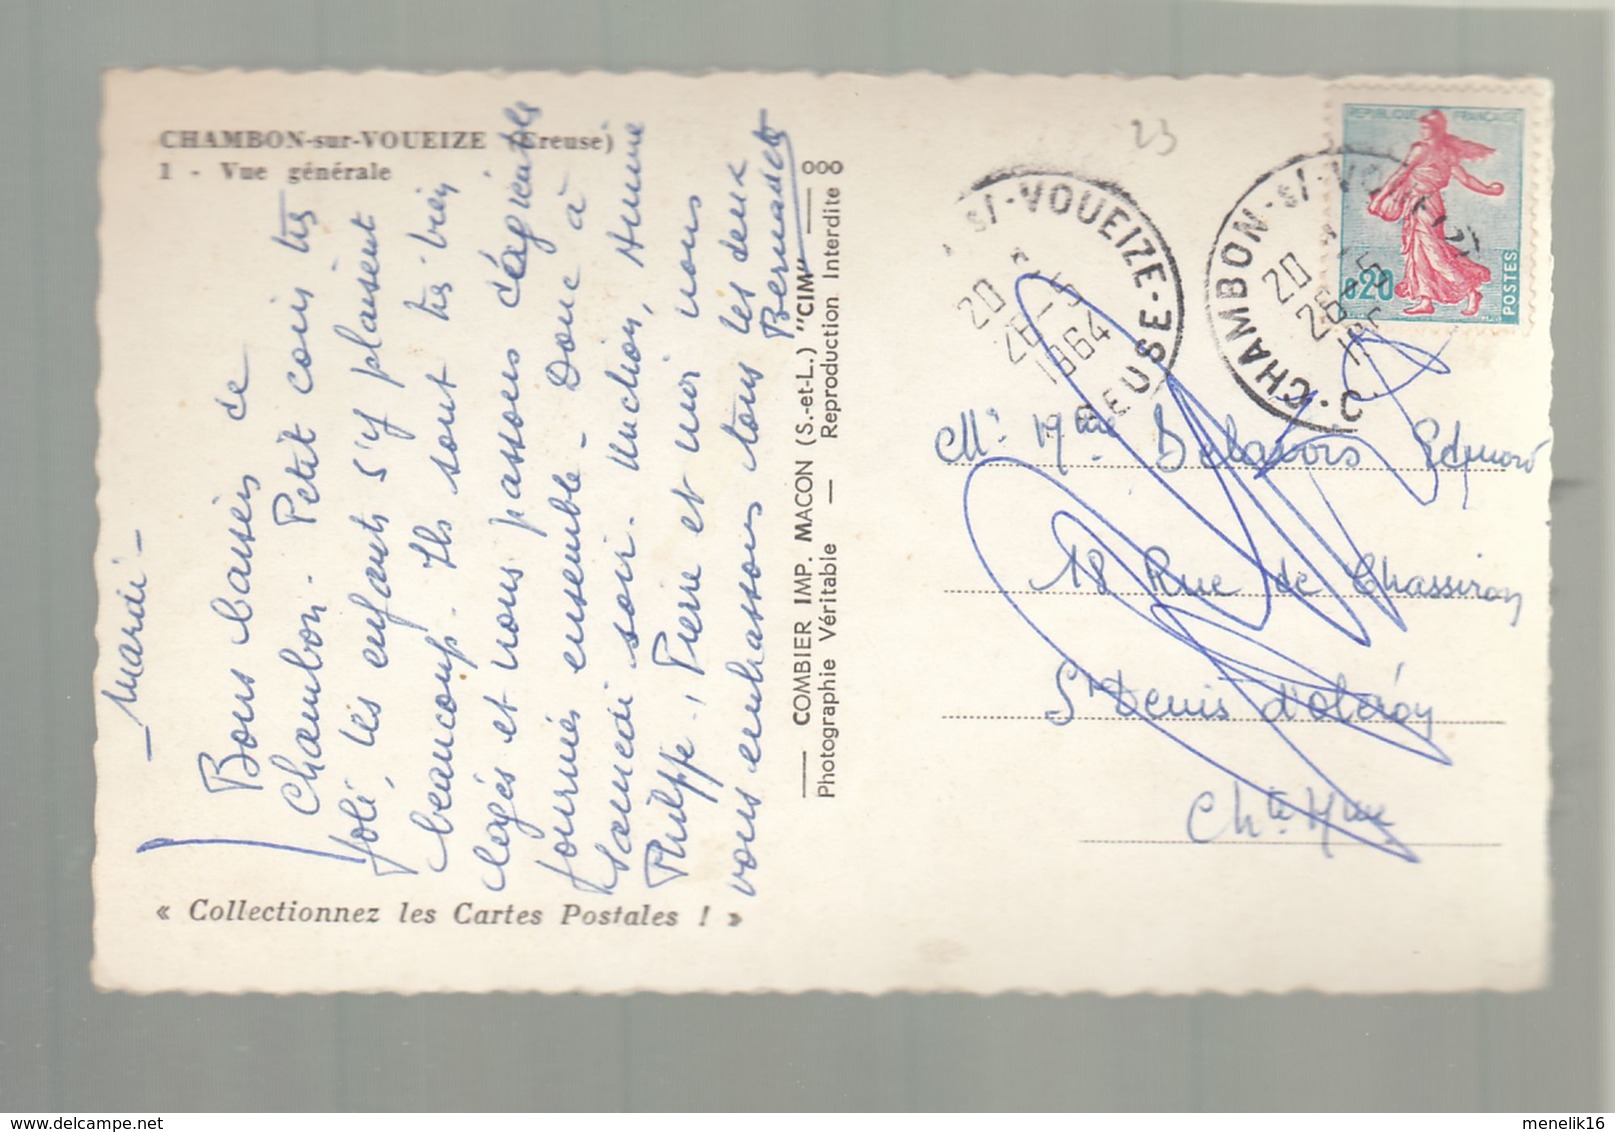 CHAMBON-sur-VOUEIZE (Creuse)
1 - Vue générale
- Mardi -
Bons baisers de
Chambon. Petit coin très
joli, les enfants s'y plaisent
beaucoup. Ils sont très bien
logés et nous passons d'agréables
journées ensemble. Donc à
samedi soir. Philippe, Pierre et moi nous
vous embrassons tous les deux
Bernadette
« Collectionnez les Cartes Postales ! »
COMBIER IMP. MACON (S.-et-L.) "CIM"
Photographie Véritable — Reproduction Interdite
000
23
S/-VOUEIZE - CREUSE
20 H
26 -5
1964
CHAMBON-S/-VOUEIZE
20 H
26 -5
REPUBLIQUE FRANÇAISE
0,20
POSTES
Mr Mme Delavois Edmond
18 Rue de Chassiron
St Denis d'Oléron
Chte Mme
menelik16
delcampe.net